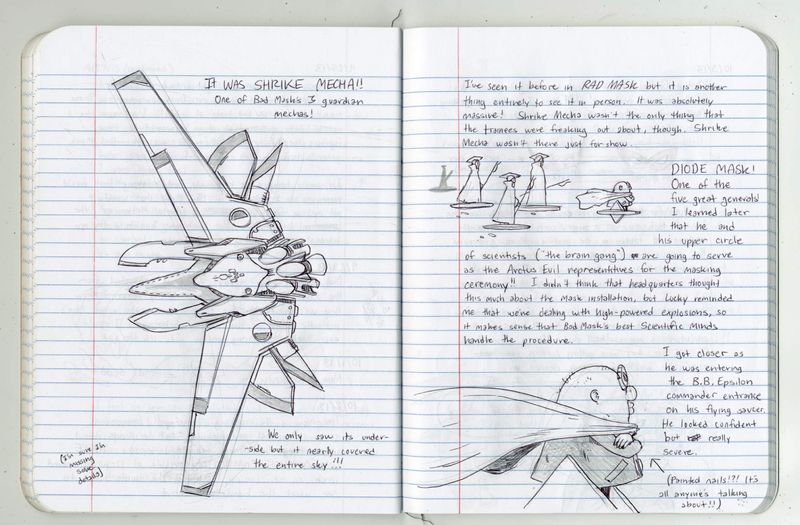 IT WAS SHRIKE MECHA!!
One of Bad Mask's 3 guardian
mechas!
We only saw its under-
-side but it nearly covered
the entire sky!!!
(I'm sure I'm
missing
some
details)
I've seen it before in RAD MASK but it is another
thing entirely to see it in person. It was absolutely
massive! Shrike Mecha wasn't the only thing that
the trainees were freaking out about, though. Shrike
Mecha wasn't there just for show.
DIODE MASK!
One of the
five great generals!
I learned later
that he and
his upper circle
of scientists ("the brain gang") are going to serve
as the Arctus Evil representitives for the masking
ceremony!! I didn't think that headquarters thought
this much about the mask installation, but Lucky reminded
me that we're dealing with high-powered explosions, so
it makes sense that Bad Mask's best Scientific Minds
handle the procedure.
I got closer as
he was entering
the B.B. Epsilon
commander entrance
on his flying saucer.
He looked confident
but really
severe.
(Painted nails!?! It's
all anyone's talking
about!!)